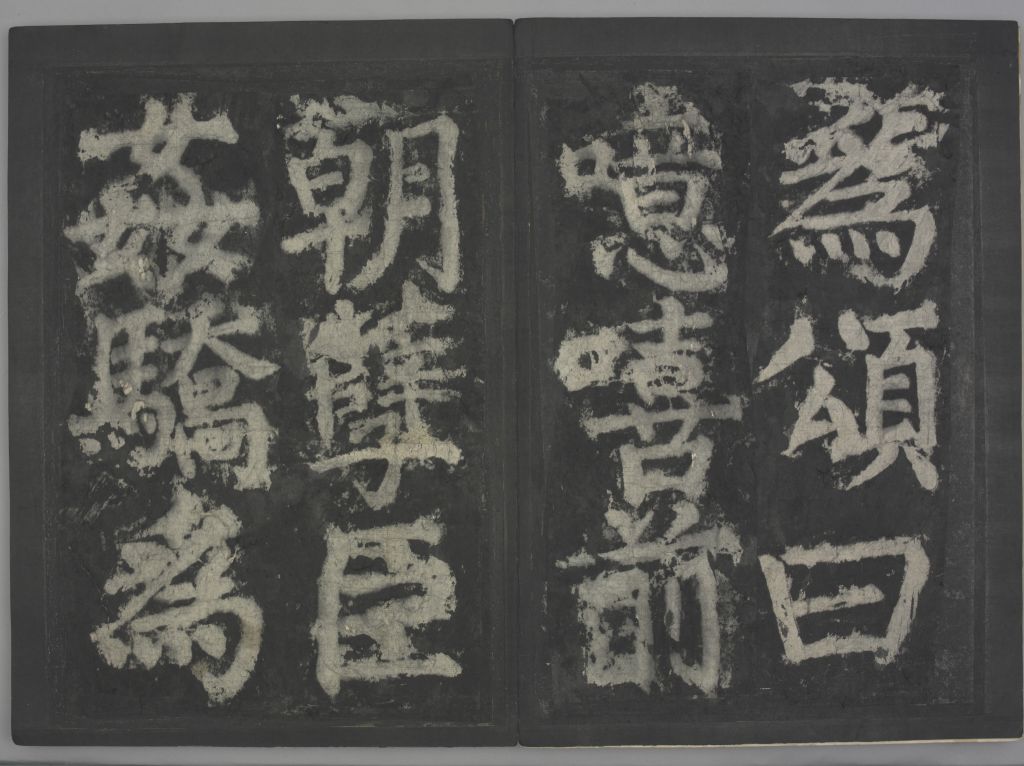 為頌曰
噫嘻前
朝孽臣
姦驕為